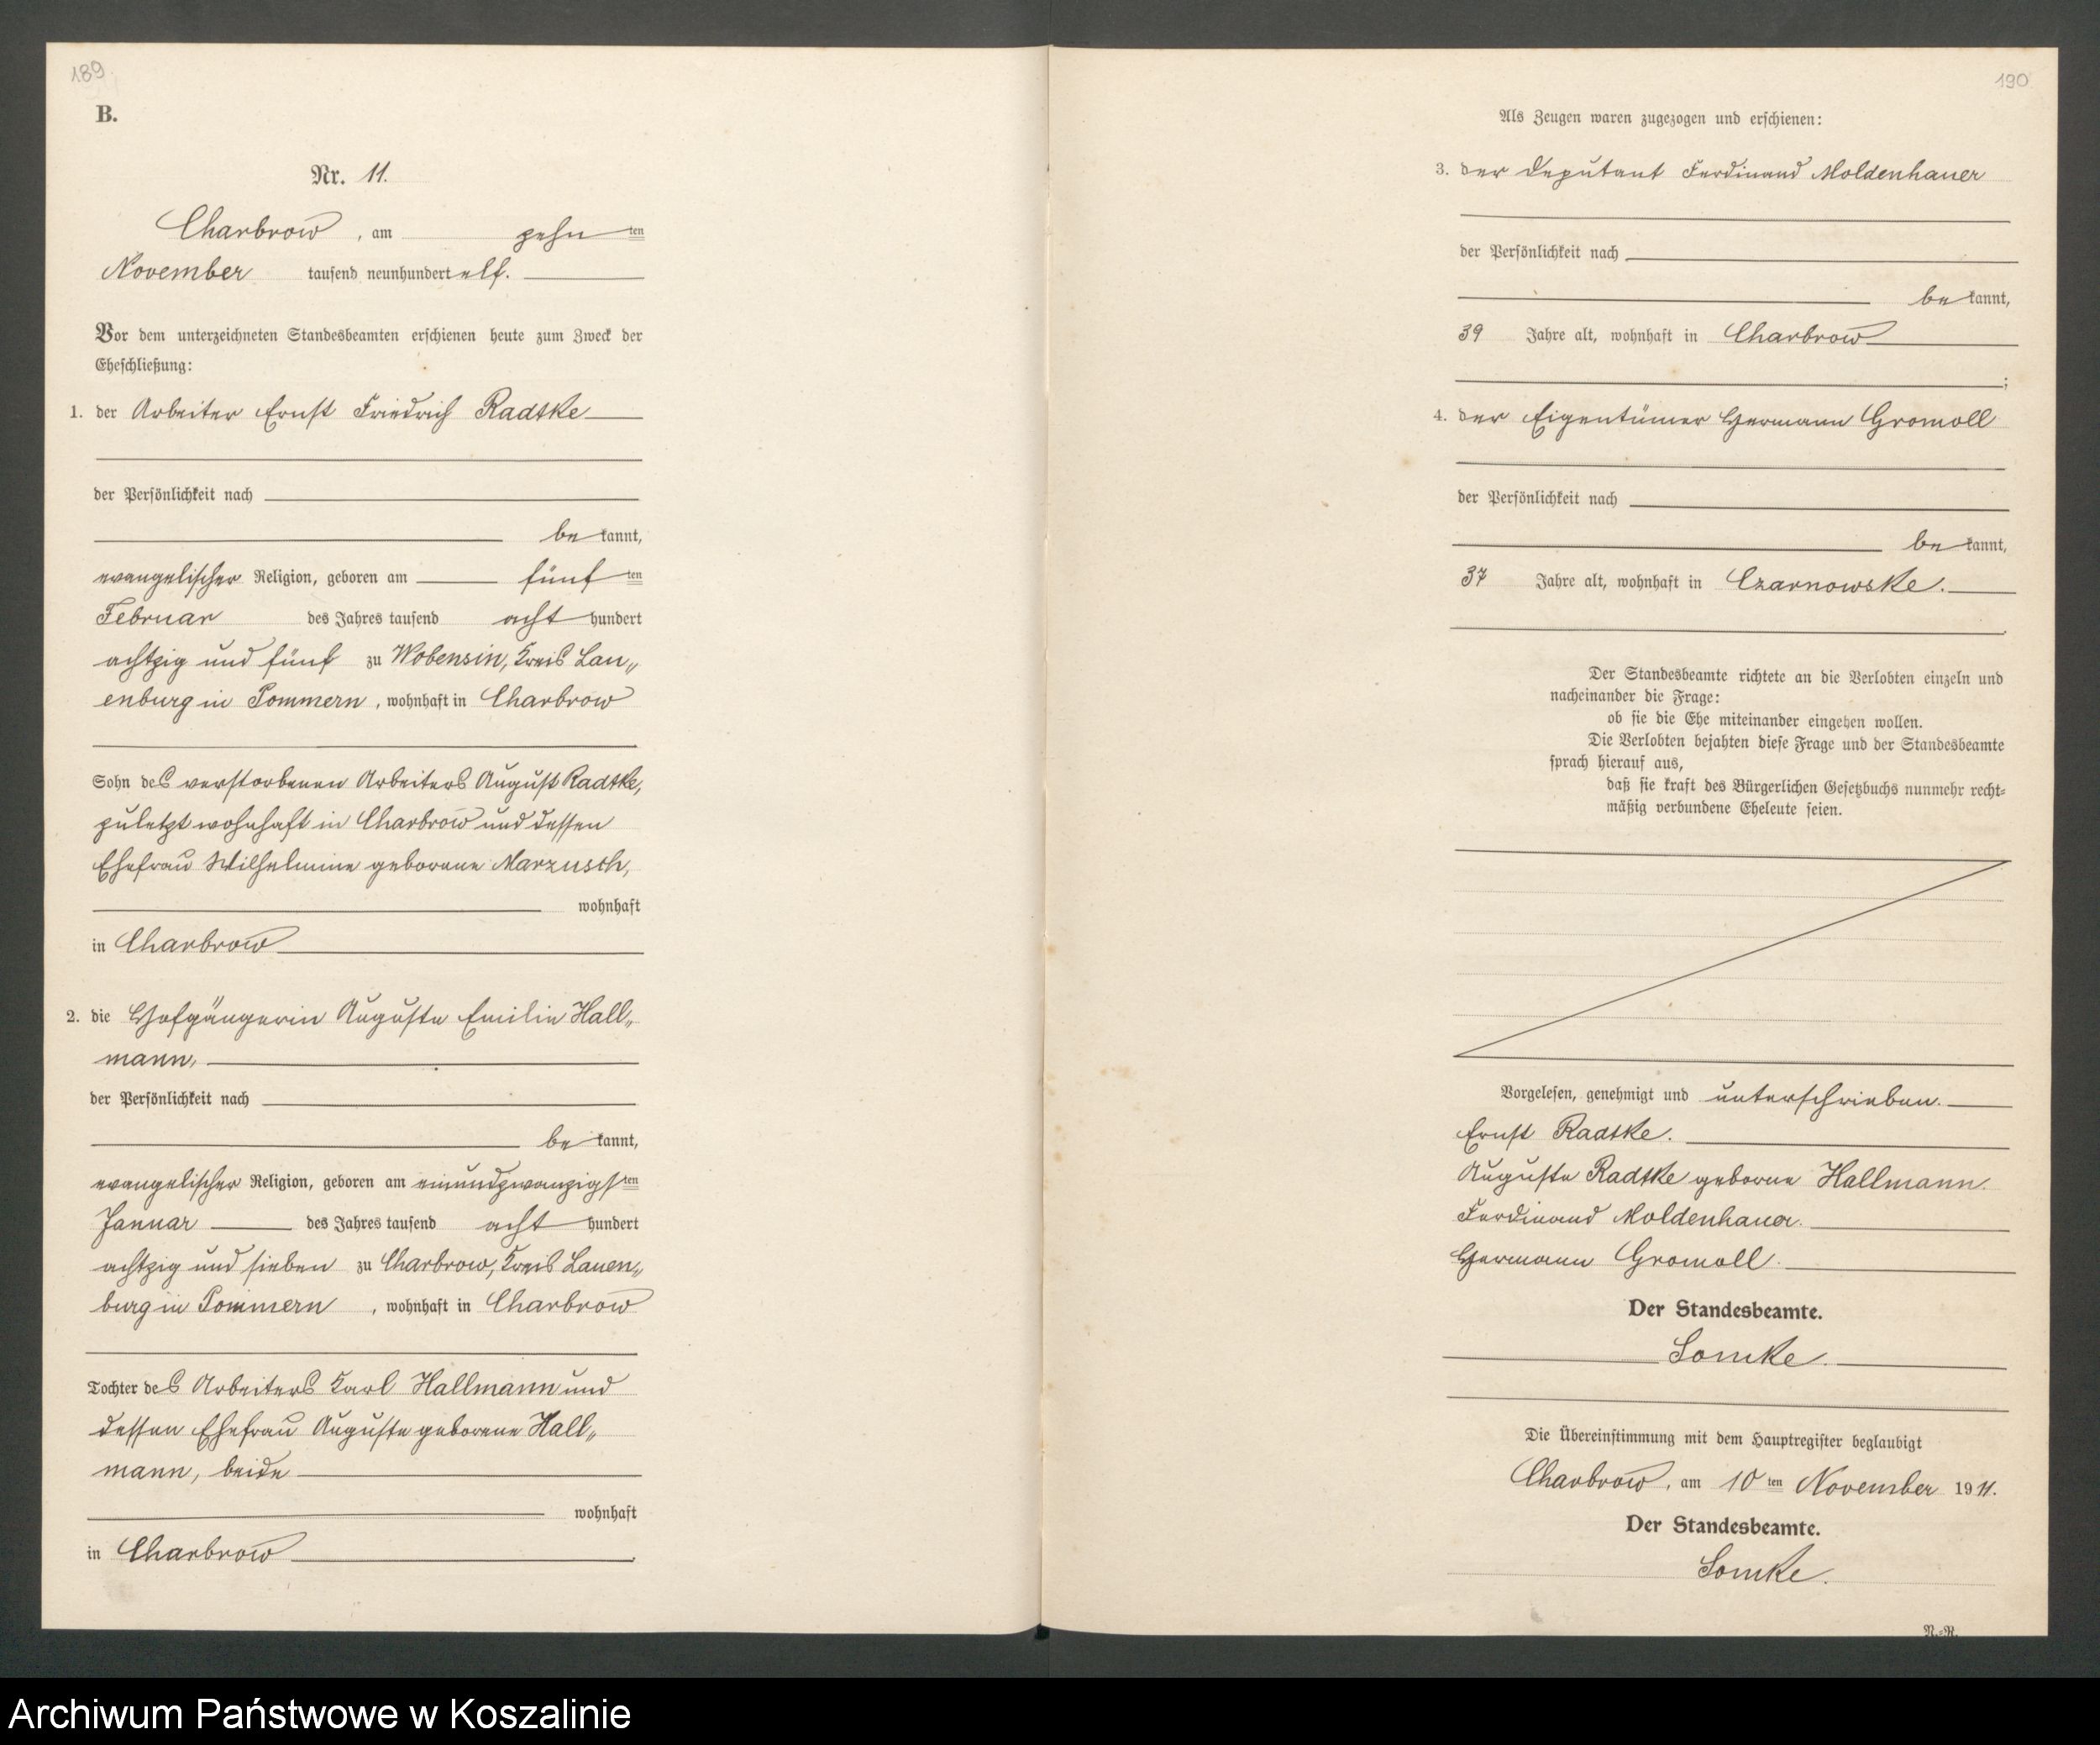 189
B.
Nr. 11.
Charbrow, am zehnten
November tausend neunhundert elf.
Vor dem unterzeichneten Standesbeamten erschienen heute zum Zweck der
Eheschließung:
1. der Arbeiter Ernst Friedrich Radtke
der Persönlichkeit nach
bekannt,
evangelischer Religion, geboren am fünften
Februar des Jahres tausend acht hundert
achtzig und fünf zu Wobensin, Kreis Lau„
enburg in Pommern, wohnhaft in Charbrow
Sohn des verstorbenen Arbeiters August Radtke,
zuletzt wohnhaft in Charbrow und dessen
Ehefrau Wilhelmine geborene Marzusch,
wohnhaft
in Charbrow
2. die Hofgängerin Auguste Emilie Hall„
mann,
der Persönlichkeit nach
bekannt,
evangelischer Religion, geboren am einundzwanzigsten
Januar des Jahres tausend acht hundert
achtzig und sieben zu Charbrow, Kreis Lauen„
burg in Pommern, wohnhaft in Charbrow
Tochter des Arbeiters Karl Hallmann und
dessen Ehefrau Auguste geborene Hall„
mann, beide
wohnhaft
in Charbrow
190
Als Zeugen waren zugezogen und erschienen:
3. der Deputant Ferdinand Moldenhauer
der Persönlichkeit nach
bekannt,
39 Jahre alt, wohnhaft in Charbrow
;
4. der Eigentümer Hermann Gromoll
der Persönlichkeit nach
bekannt,
37 Jahre alt, wohnhaft in Czarnowske.
Der Standesbeamte richtete an die Verlobten einzeln und
nacheinander die Frage:
ob sie die Ehe miteinander eingehen wollen.
Die Verlobten bejahten diese Frage und der Standesbeamte
sprach hierauf aus,
daß sie kraft des Bürgerlichen Gesetzbuchs nunmehr recht-
mäßig verbundene Eheleute seien.
Vorgelesen, genehmigt und unterschrieben.
Ernst Radtke.
Auguste Radtke geborne Hallmann.
Ferdinand Moldenhauer.
Hermann Gromoll.
Der Standesbeamte.
Lomke.
Die Übereinstimmung mit dem Hauptregister beglaubigt
Charbrow, am 10ten November 1911.
Der Standesbeamte.
Lomke.
N.-R.
Archiwum Państwowe w Koszalinie